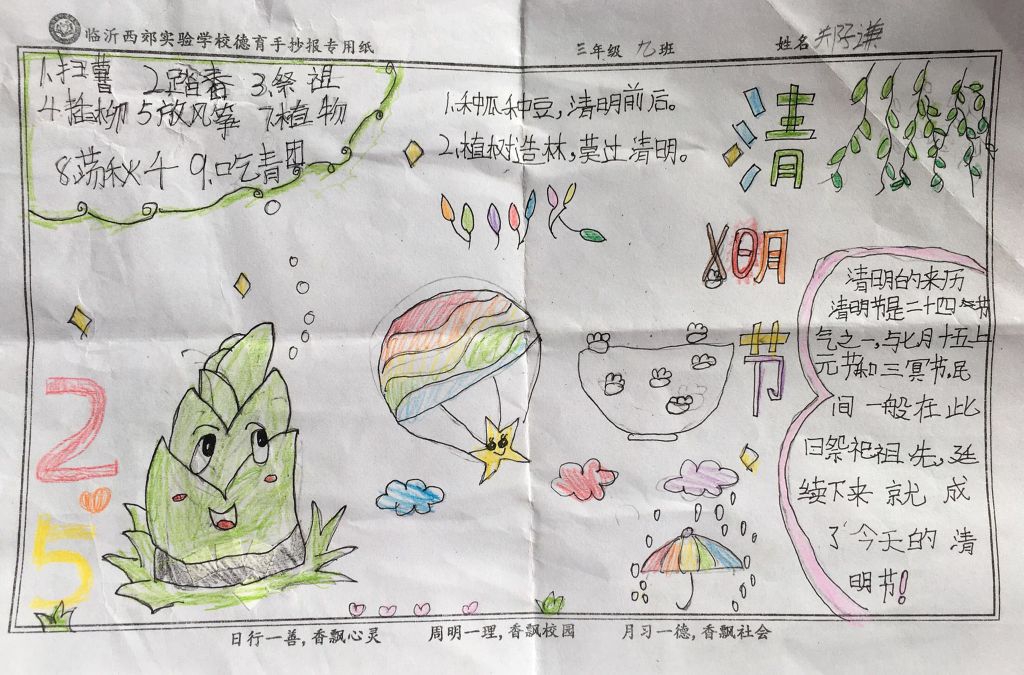 临沂西郊实验学校德育手抄报专用纸
三年级 九班 姓名
1.扫 2.踏春 3.祭祖
4.植柳 5.放风筝 7.植物
8.荡秋千 9.吃青团
1.种瓜种豆,清明前后。
2.植树造林,莫过清明。
清
明
节
清明的来历
清明节是二十四个节
气之一,与七月十五上
元节和三冥节,民
间一般在此
日祭祀祖先,延
续下来 就 成
了今天的 清
明节!
2
5
日行一善,香飘心灵 周明一理,香飘校园 月习一德,香飘社会